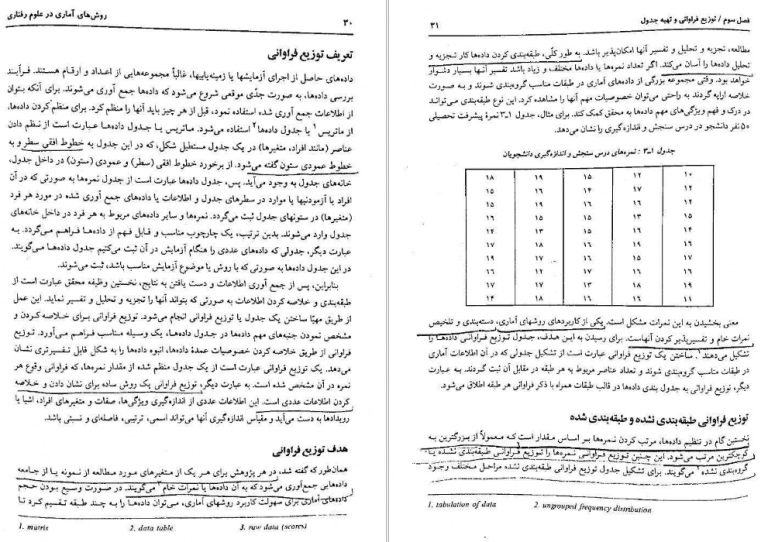 ۳۰
روش‌های آماری در علوم رفتاری
تعریف توزیع فراوانی
داده‌های حاصل از اجرای آزمایشها یا زمینه‌یابیها، غالباً مجموعه‌هایی از اعداد و ارقام هستند. فرآیند
بررسی داده‌ها، به صورت جدّی موقعی شروع می‌شود که داده‌ها جمع آوری می‌شوند. برای آنکه بتوان
از اطلاعات جمع آوری شده استفاده نمود، قبل از هر چیز باید آنها را منظم کرد. برای منظم کردن داده‌ها،
از ماتریس ۱ یا جدول داده‌ها ۲ استفاده می‌شود. ماتریس یا جدول داده‌ها عبارت است از نظم دادن
عناصر (مانند افراد، متغیرها) در یک جدول مستطیل شکل، که در این جدول به خطوط افقی سطر و به
خطوط عمودی ستون گفته می‌شود. از برخورد خطوط افقی (سطر) و عمودی (ستون) در داخل جدول،
خانه‌های جدول به وجود می‌آید. پس، جدول داده‌ها عبارت است از جدول نمره‌ها به صورتی که در آن
افراد یا آزمودنیها یا موارد در سطرهای جدول و اطلاعات یا داده‌های جمع آوری شده در مورد هر فرد
(متغیرها) در ستونهای جدول ثبت می‌گردد. نمره‌ها و سایر داده‌های مربوط به هر فرد در داخل خانه‌های
جدول وارد می‌شوند. بدین ترتیب، یک چارچوب مناسب و قابل فهم از داده‌ها فراهم می‌گردد. به
عبارت دیگر، جدولی که داده‌های عددی را هنگام آزمایش در آن ثبت می‌کنیم جدول داده‌ها می‌گویند.
در این جدول داده‌ها به صورتی که با روش یا موضوع آزمایش مناسب باشد، ثبت می‌شوند.
بنابراین، پس از جمع آوری اطلاعات و دست یافتن به نتایج، نخستین وظیفه محقق عبارت است از
طبقه‌بندی و خلاصه کردن اطلاعات به صورتی که بتواند آنها را تجزیه و تحلیل و تفسیر نماید. این عمل
از طریق مهیّا ساختن یک جدول یا توزیع فراوانی انجام می‌شود. توزیع فراوانی برای خلاصه کردن و
مشخص نمودن جنبه‌های مهم داده‌ها در جدول داده‌ها، یک وسیله مناسب فراهم می‌آورد. توزیع
فراوانی از طریق خلاصه کردن خصوصیات عمدهٔ داده‌ها، انبوه داده‌ها را به شکل قابل تفسیرتری نشان
می‌دهد. یک توزیع فراوانی عبارت است از یک جدول منظم شده از مقدار نمره‌ها، که فراوانی وقوع هر
نمره در آن مشخص شده است. به عبارت دیگر، توزیع فراوانی یک روش ساده برای نشان دادن و خلاصه
کردن اطلاعات عددی است. این اطلاعات عددی از اندازه‌گیری ویژگی‌ها، صفات و متغیرهای افراد، اشیا یا
رویدادها به دست می‌آید و مقیاس اندازه‌گیری آنها می‌تواند اسمی، ترتیبی، فاصله‌ای و نسبتی باشد.
هدف توزیع فراوانی
همان‌طور که گفته شد، در هر پژوهش برای هر یک از متغیرهای مورد مطالعه از نمونه یا از جامعه
داده‌هایی جمع‌آوری می‌شود که به آن داده‌ها یا نمرات خام ۳ می‌گویند. در صورت وسیع بودن حجم
داده‌های آماری برای سهولت کاربرد روشهای آماری، می‌توان داده‌ها را به چند طبقه تقسیم کرد تا
1. matrix 2. data table 3. raw data (scores)
فصل سوم / توزیع فراوانی و تهیه جدول
۳۱
مطالعه، تجزیه و تحلیل و تفسیر آنها امکان‌پذیر باشد. به طور کلّی، طبقه‌بندی کردن داده‌ها کار تجزیه و
تحلیل داده‌ها را آسان می‌کند. اگر تعداد نمره‌ها یا داده‌ها مختلف و زیاد باشد تفسیر آنها بسیار دشوار
خواهد بود. وقتی مجموعه بزرگی از داده‌های آماری در طبقات مناسب گروه‌بندی شوند و به صورت
خلاصه ارایه گردند به راحتی می‌توان خصوصیات مهم آنها را مشاهده کرد. این نوع طبقه‌بندی می‌تواند
در درک و فهم ویژگی‌های مهم داده‌ها به محقق کمک کند. برای مثال، جدول ۱-۳ نمرهٔ پیشرفت تحصیلی
۵۰ نفر دانشجو در درس سنجش و اندازه‌گیری را نشان می‌دهد.
جدول ۱-۳ : نمره‌های درس سنجش و اندازه‌گیری دانشجویان
۱۸ ۱۹ ۱۵ ۱۲ ۱۰
۱۵ ۱۶ ۱۴ ۱۷ ۱۲
۱۵ ۱۹ ۱۵ ۱۶ ۱۵
۱۶ ۱۵ ۱۶ ۱۵ ۱۳
۱۴ ۱۳ ۱۵ ۱۶ ۱۴
۱۷ ۱۸ ۱۶ ۱۷ ۱۶
۱۹ ۱۷ ۱۶ ۱۵ ۱۷
۱۶ ۱۲ ۱۷ ۱۷ ۱۶
۱۷ ۱۷ ۱۳ ۱۸ ۱۶
۱۴ ۱۸ ۱۶ ۱۶ ۱۱
معنی بخشیدن به این نمرات مشکل است. یکی از کاربردهای روشهای آماری، دسته‌بندی و تلخیص
نمرات خام و تفسیرپذیر کردن آنهاست. برای رسیدن به این هدف، جدول توزیع فراوانی داده‌ها را
تشکیل می‌دهند ۱. ساختن یک توزیع فراوانی عبارت است از تشکیل جدولی که در آن اطلاعات آماری
در طبقات مناسب گروه‌بندی شوند و تعداد عناصر مربوط به هر طبقه در مقابل آن ثبت گردند. به عبارت
دیگر، توزیع فراوانی به جدول بندی داده‌ها در قالب طبقات همراه با ذکر فراوانی هر طبقه اطلاق می‌شود.
توزیع فراوانی طبقه‌بندی نشده و طبقه‌بندی شده
نخستین گام در تنظیم داده‌ها، مرتب کردن نمره‌ها بر اساس مقدار است که معمولاً از بزرگترین به
کوچکترین مرتب می‌شود. این چنین توزیع فراوانی نمره‌ها را توزیع فراوانی طبقه‌بندی نشده یا
گروه‌بندی نشده ۲ می‌گویند. برای تشکیل جدول توزیع فراوانی طبقه‌بندی نشده مراحل مختلف وجود
1. tabulation of data 2. ungrouped frequency distribution